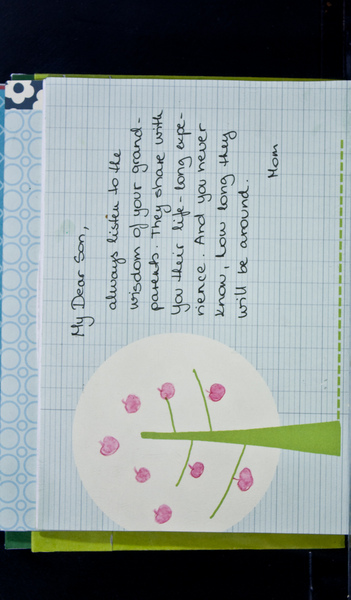 My Dear Son,
always listen to the
wisdom of your grand-
parents. They share with
you their life-long expe-
rience. And you never
know, how long they
will be around.
Mom